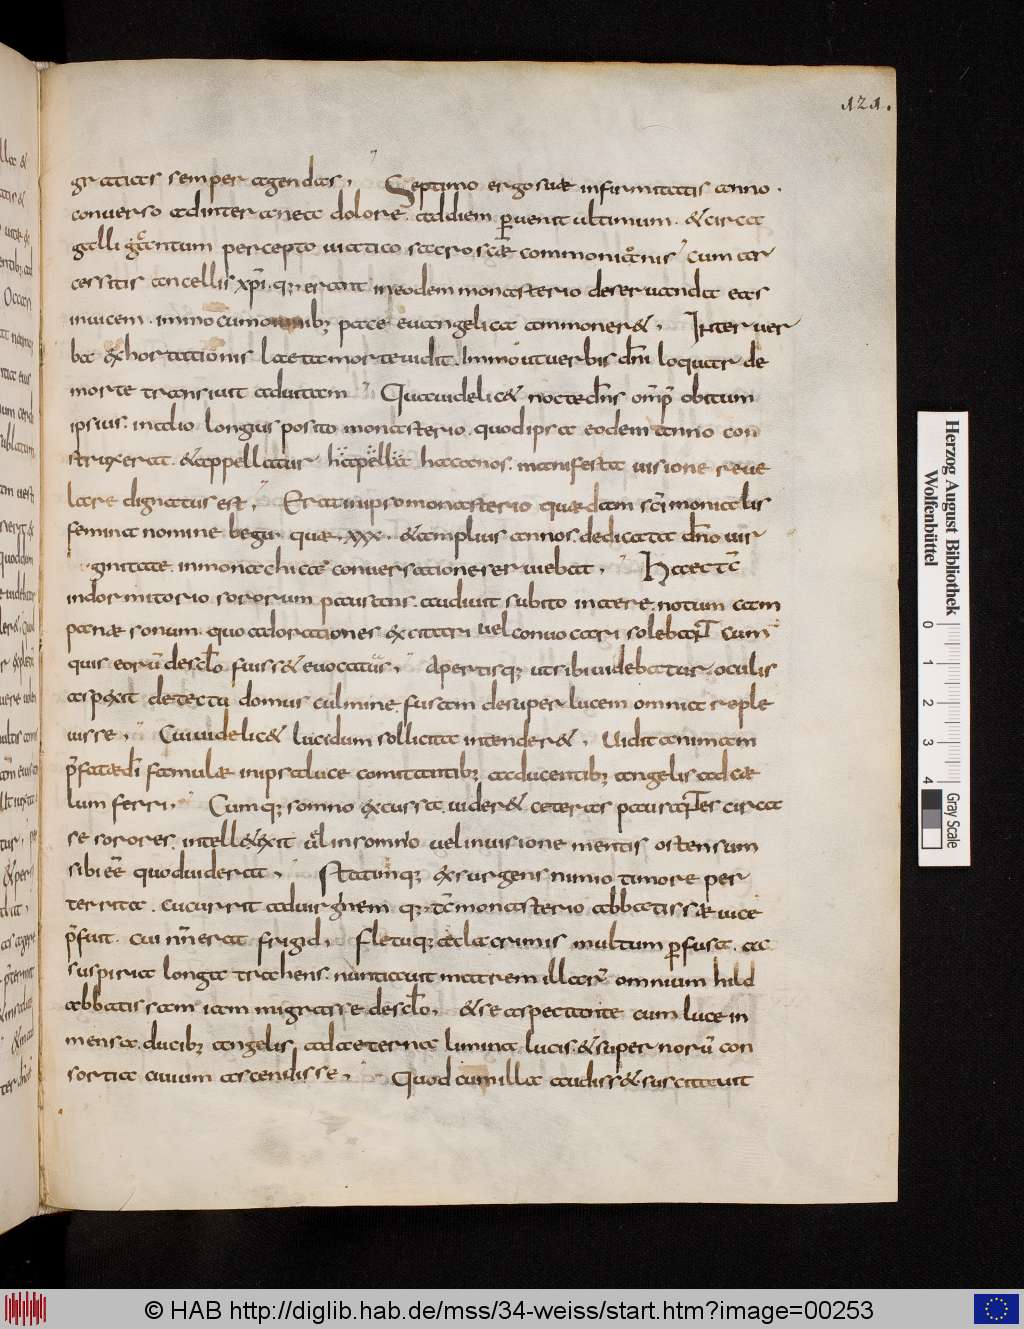 121.
gratias semper agendas. Septimo ergo suae infirmitatis anno.
converso ad interanea dolore. ad diem ꝑvenit ultimum. & circa
galli cantum percepto viatico sacro scae communionis cum ar
cessitis ancellis xp̄i. q; erant in eodem monasterio deservanda eas
invicem. immo cum omnib; pace evangelica ammoner&. Inter ver
ba exhortationis laeta morte vidit. Immo ut verbis dn̄i loquar de
morte transivit ad vitam Qua videlic& nocte dn̄s om̄p̄ obitum
ipsius. in alio longius posito monasterio. quod ipsa eodem anno con
struxerat. & appellatur hacanos. manifesta visione reve
lare dignatus est. Erat in ipso monasterio quaedam sc̄imonialis
femina nomine begu. quae. xxx. & amplius annos. dedicata dn̄o vir
ginitate. in monachica conversatione serviebat. Haec tc̄
in dormitorio sororum pausans. audivit subito in aere. notum cam
panae sonum. quo ad orationes excitari vel convocari solebant cum
quis eorū de sclō fuiss& evocatus. Apertisq; ut sibi videbatur. oculis
aspexit detecta domus culmine. fusam desuper lucem omnia reple
visse. Cui videlic& lucidum sollicita intender&. Vidit animam
p̄fatae dī famulae in ipsa luce comitantib; ac ducentib; angelis ad cae
lum ferri. Cumq; somno excussa. vider& ceteras pausantes circa
se sorores. intell&exit vel in somno vel in visione mentis ostensum
sibi eē quod viderat. Statimq; exsurgens nimio timore per
territa. cucurrit ad virginem q; tc̄ monasterio abbatissae vice
p̄fuit. cui nn̄ erat frigid. fletuq; ac lacrimis multum ꝑfusa. ac
suspiria longa trahens. nuntiavit matrem illarū omnium hild
abbatissam iam migrasse de sclō. & se aspectante cum luce in
mensa. ducib; angelis. ad aeternae limina lucis. & supernorū con
sortia civium ascendisse. Quod cum illa audiss& suscitavit
Herzog August Bibliothek
Wolfenbüttel
0 1 2 3 4
Gray Scale
© HAB http://diglib.hab.de/mss/34-weiss/start.htm?image=00253